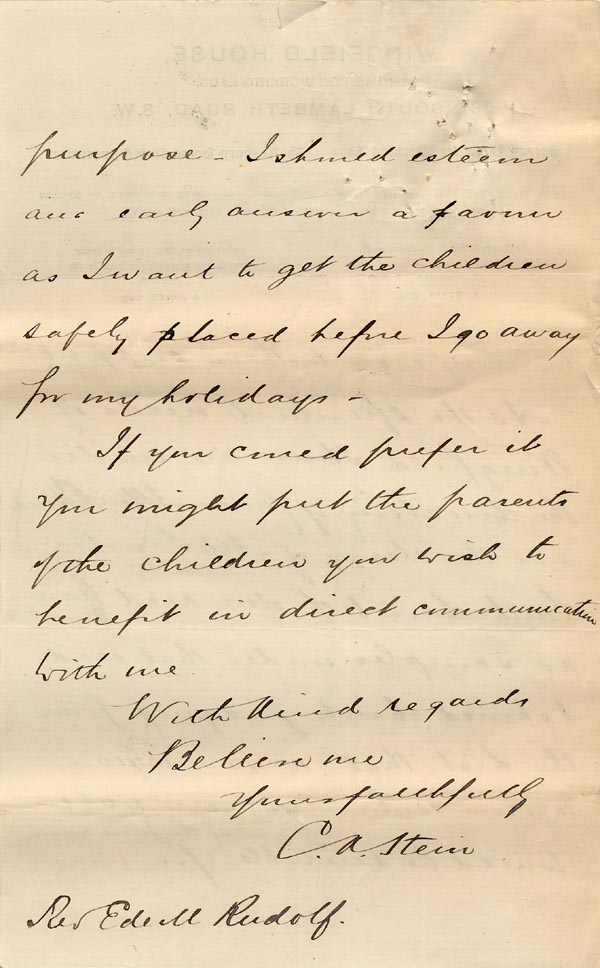 WINGFIELD HOUSE,
HOME FOR WORKING LADS
SOUTH LAMBETH ROAD, S.W.
purpose - I should esteem
and early answer a favour
as I want to get the children
safely placed before I go away
for my holidays -
If you could prefer it
you might put the parents
of the children you wish to
benefit in direct communication
with me
With kind regards
Believe me
Yours faithfully
C. A. Stein
Rev Ede M Rudolf.